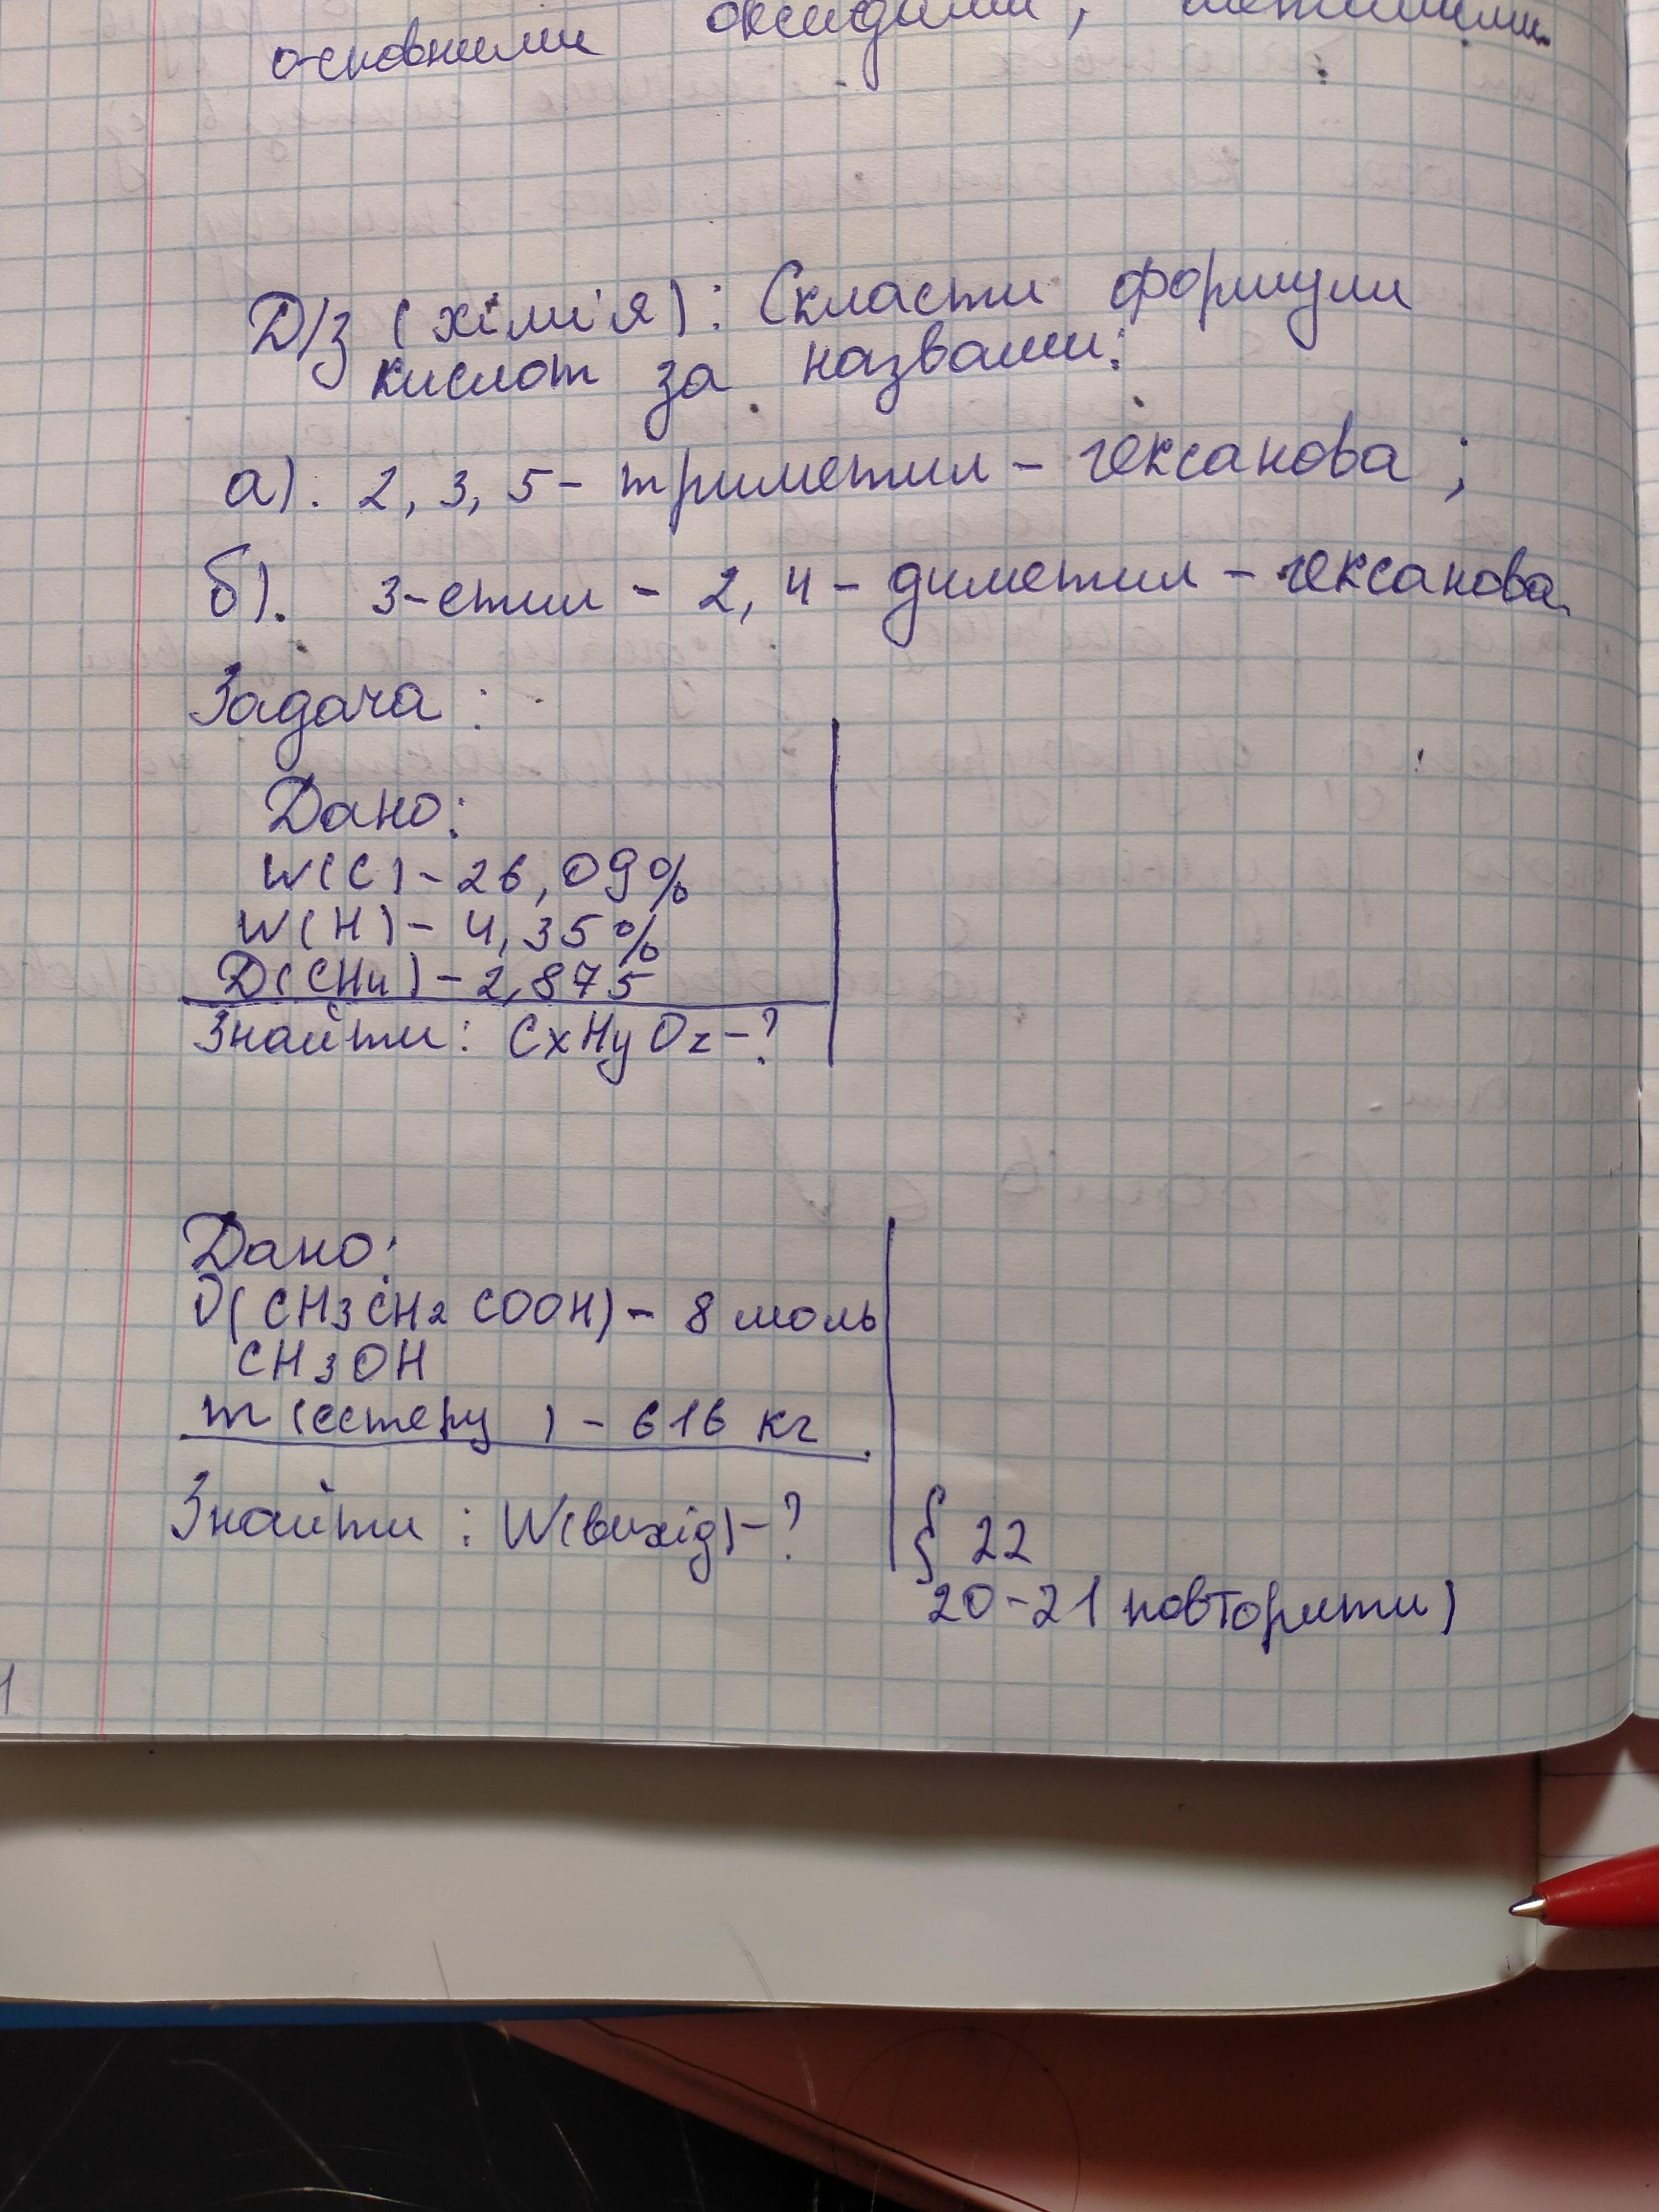 основними оксидами,
Д/з (хімі'я): Скласти формули
кислот за назвами:
а). 2, 3, 5- триметил - гексанова ;
б). 3-етил - 2, 4 - диметил - гексанова.
Задача :
Дано:
W(C) - 26, 09%
W(H) - 4, 35%
D(CH4) - 2,875
Знайти: CxHyOz-?
Дано:
ν(CH3CH2COOH) - 8 моль
CH3OH
m (естеру ) - 616 кг
Знайти : W(вихід)-?
§ 22
20-21 повторити)